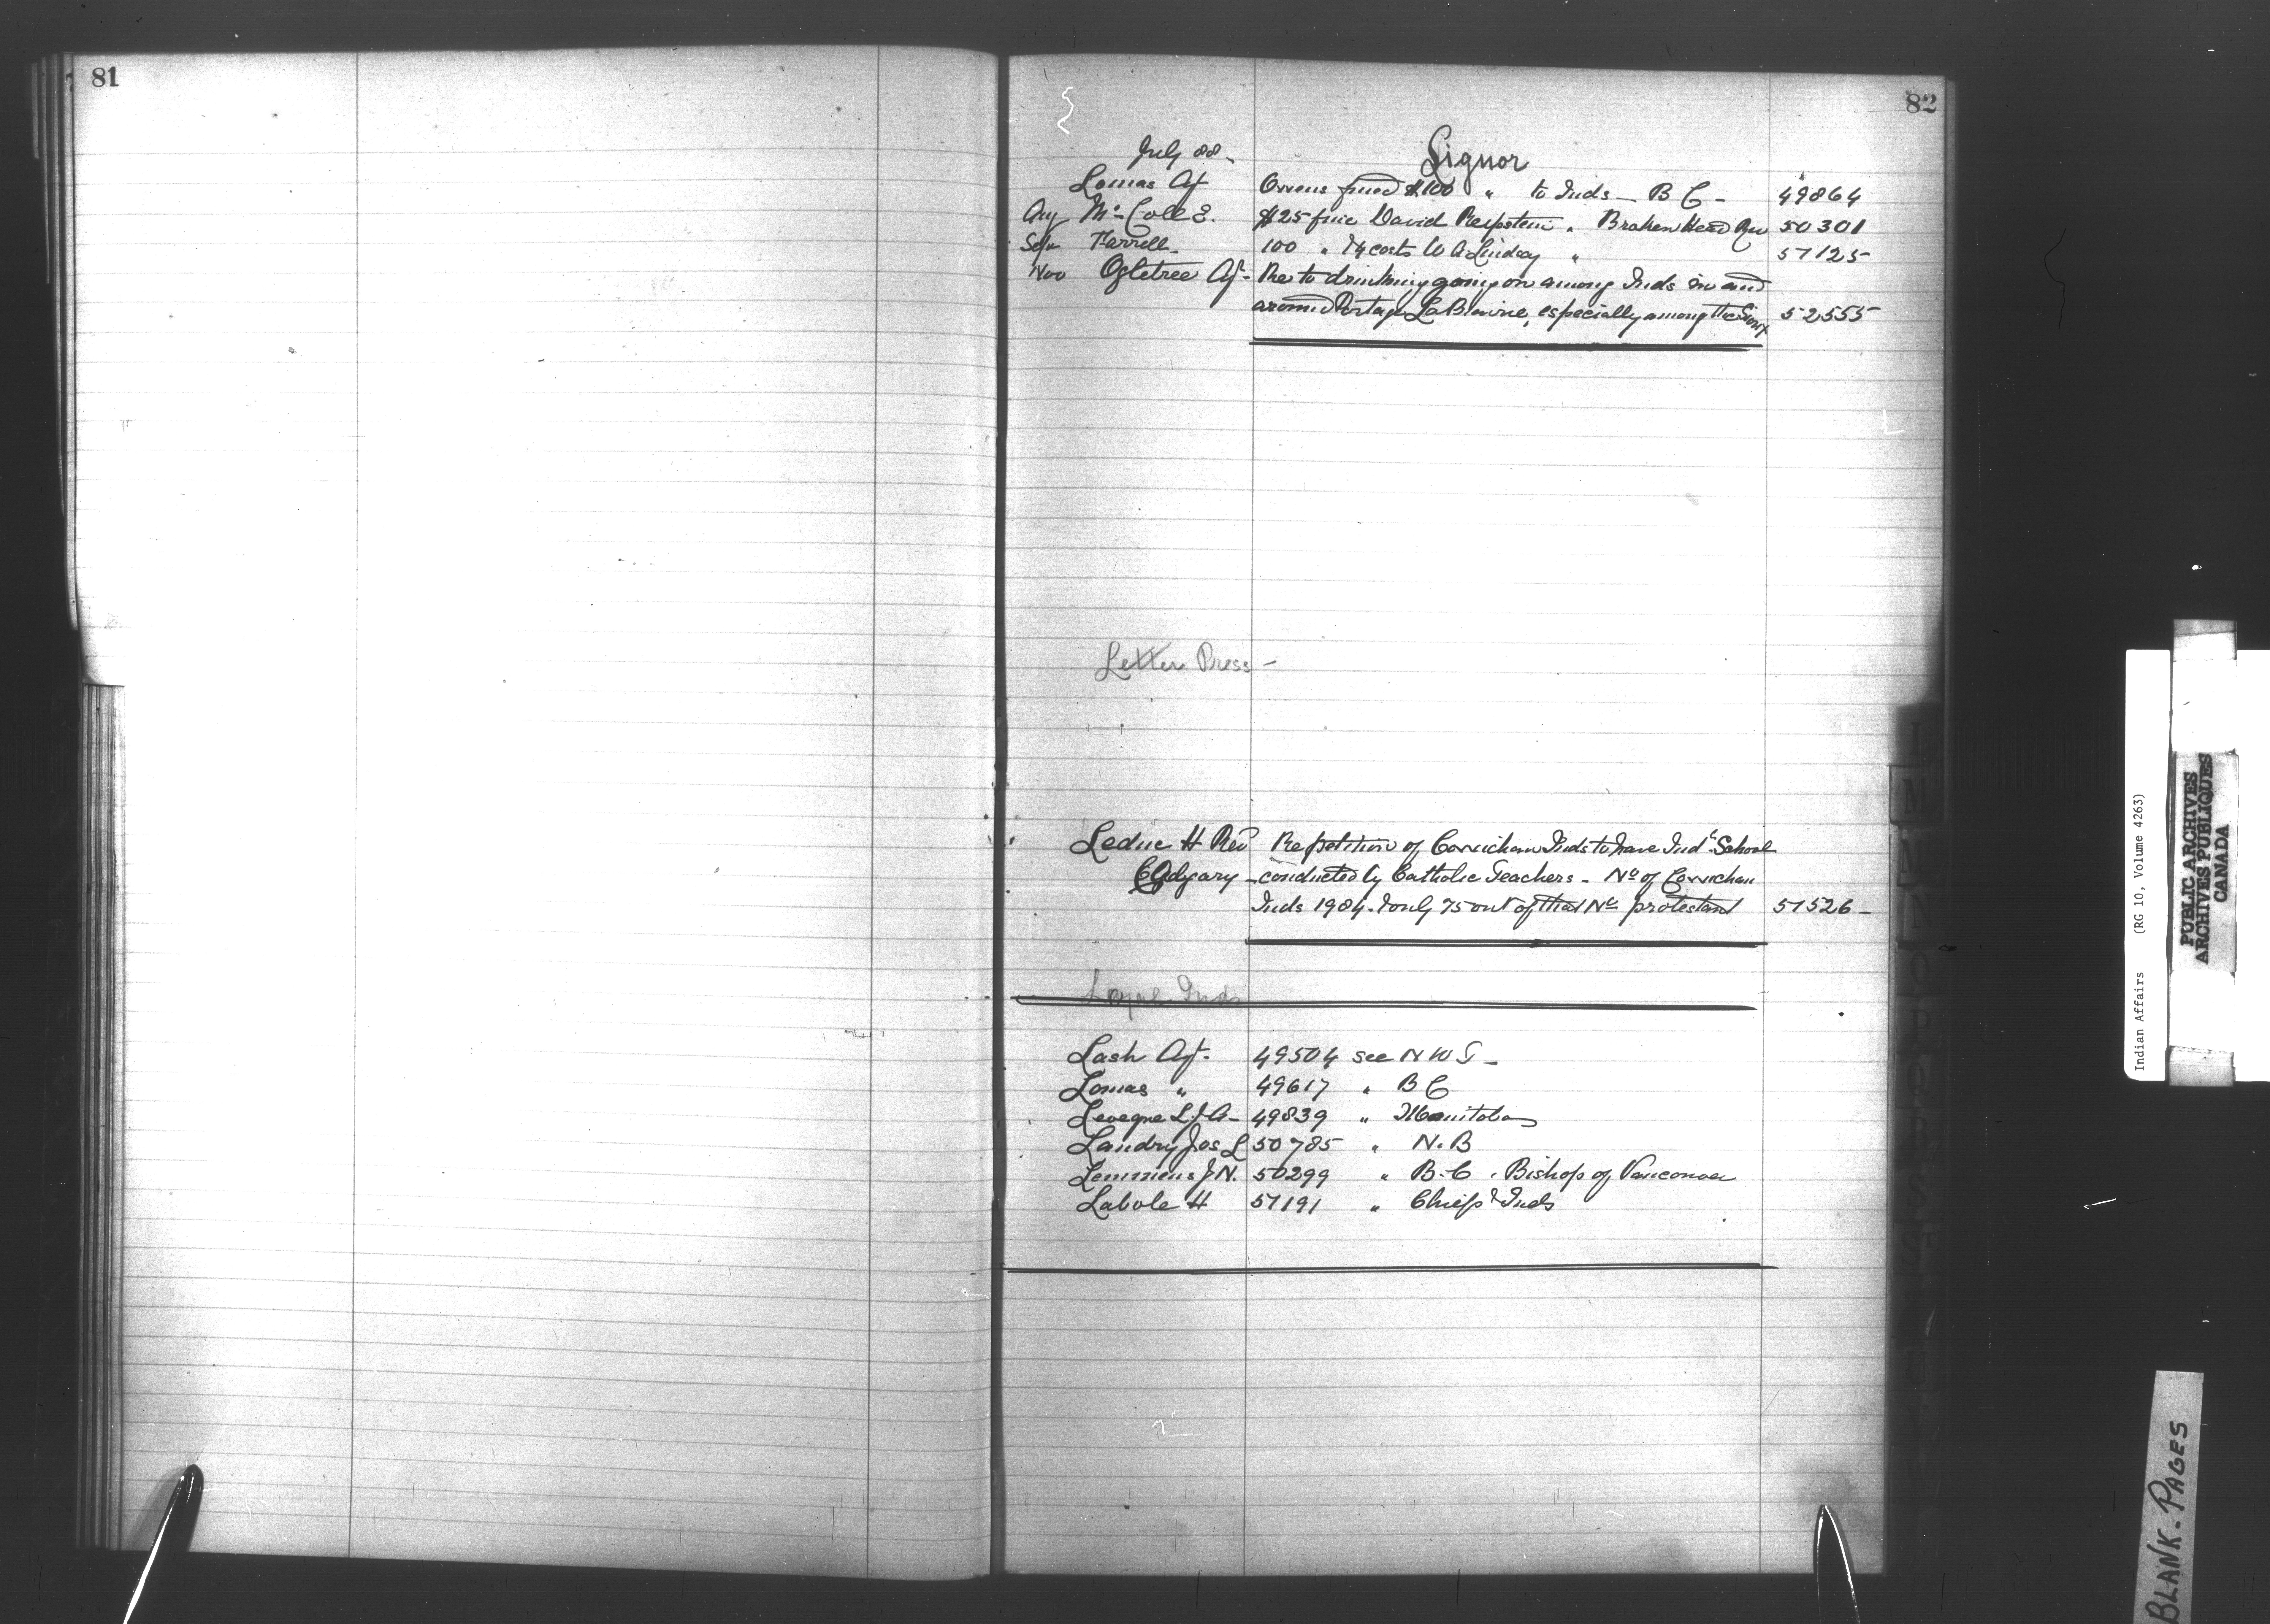 81
82
July 88
Liquor
Lomas Agt Owens fined $100 " to Inds - B C - 49864
Aug McColl E. $25 fine David " Broken Head Rv 50301
Sep Farrell 100 " & costs W A Lindsay " 51125
Nov Ogletree Agt - Re to drinking going on among Inds in and
around Portage La Prairie, especially among the Sioux 52555
Letter Press -
Leduc H Rev Re petition of Cowichan Inds to have Ind. School
Calgary - conducted by Catholic Teachers - No of Cowichan
Inds 1984. & only 75 out of that No protestant 51526 -
Loyal Inds
Lash Agt. 49504 see N W T -
Lomas " 49617 " B C
Leveque L J A - 49839 " Manitoba
Landry Jos L 50785 " N.B
Lemmens J N. 50299 " B.C. Bishop of Vancouver
Labole H 51191 " Chiefs & Inds
Indian Affairs (RG 10, Volume 4263)
PUBLIC ARCHIVES
ARCHIVES PUBLIQUES
CANADA
BLANK. PAGES